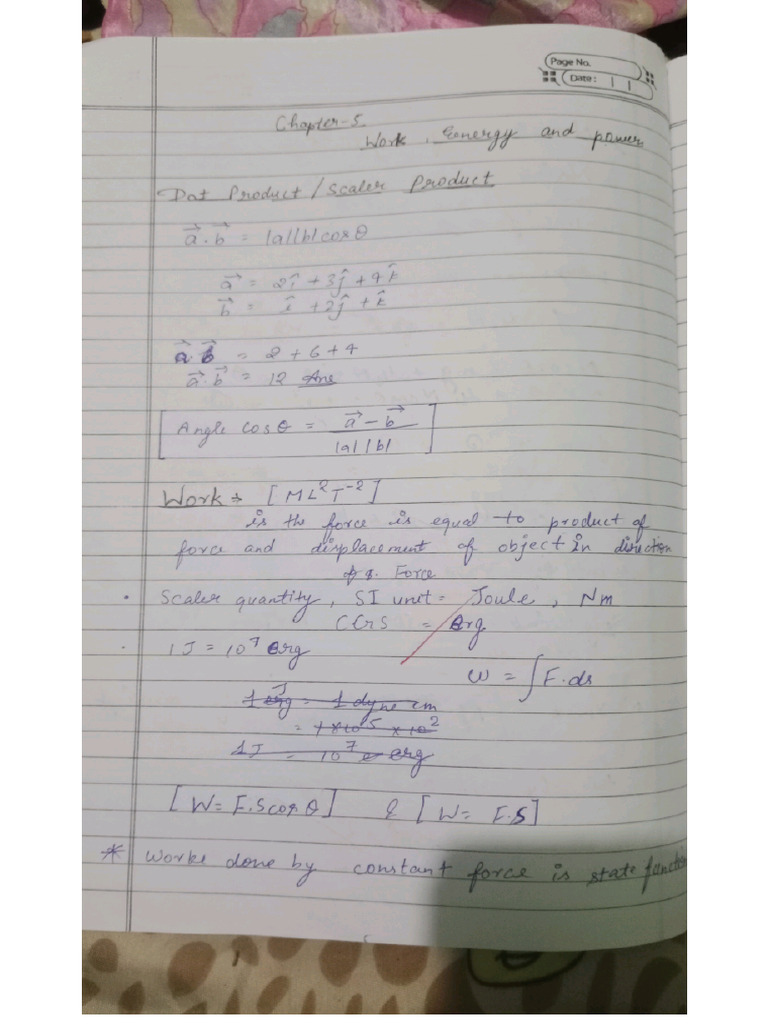 Page No.
Date : | |
Chapter-5
Work, Eenergy and power
Dot Product / Scaler Product
a⃗.b⃗ = |a||b|cosθ
a⃗ = 2î+3ĵ+4k̂
b⃗ = î+2ĵ+k̂
a⃗.b⃗ = 2+6+4
a⃗.b⃗ = 12 Ans
[Angle cosθ = a⃗-b⃗ / |a||b|]
Work → [ML²T⁻²]
is the force is equal to product of
force and displacement of object in direction
of Force
• Scaler quantity, SI unit = Joule, Nm
CGS = erg
• 1J = 10⁷ erg
W = ∫F.ds
1 J = 1 dyne cm
= 1×10⁵×10²
1J = 10⁷ erg
[W= F.Scosθ] & [W= F.S]
* Worke done by constant force is state function